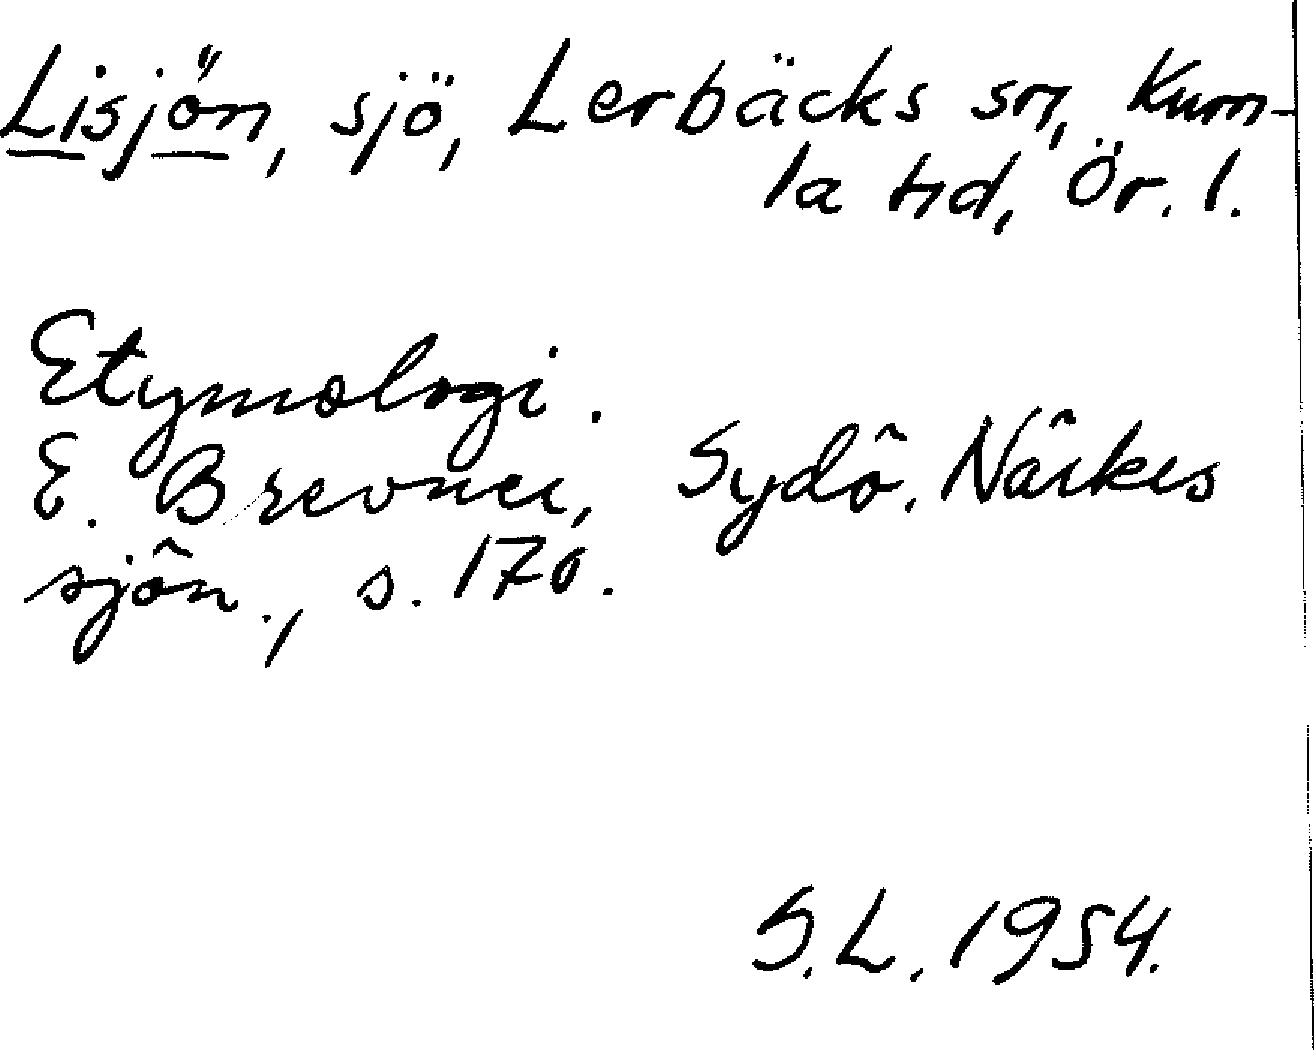 Lisjön, sjö, Lerbäcks sn, Kum-
la hd, Ör. l.
Etymologi.
E. Brevner, Sydö. Närkes
sjön., s. 170.
S.L. 1954.